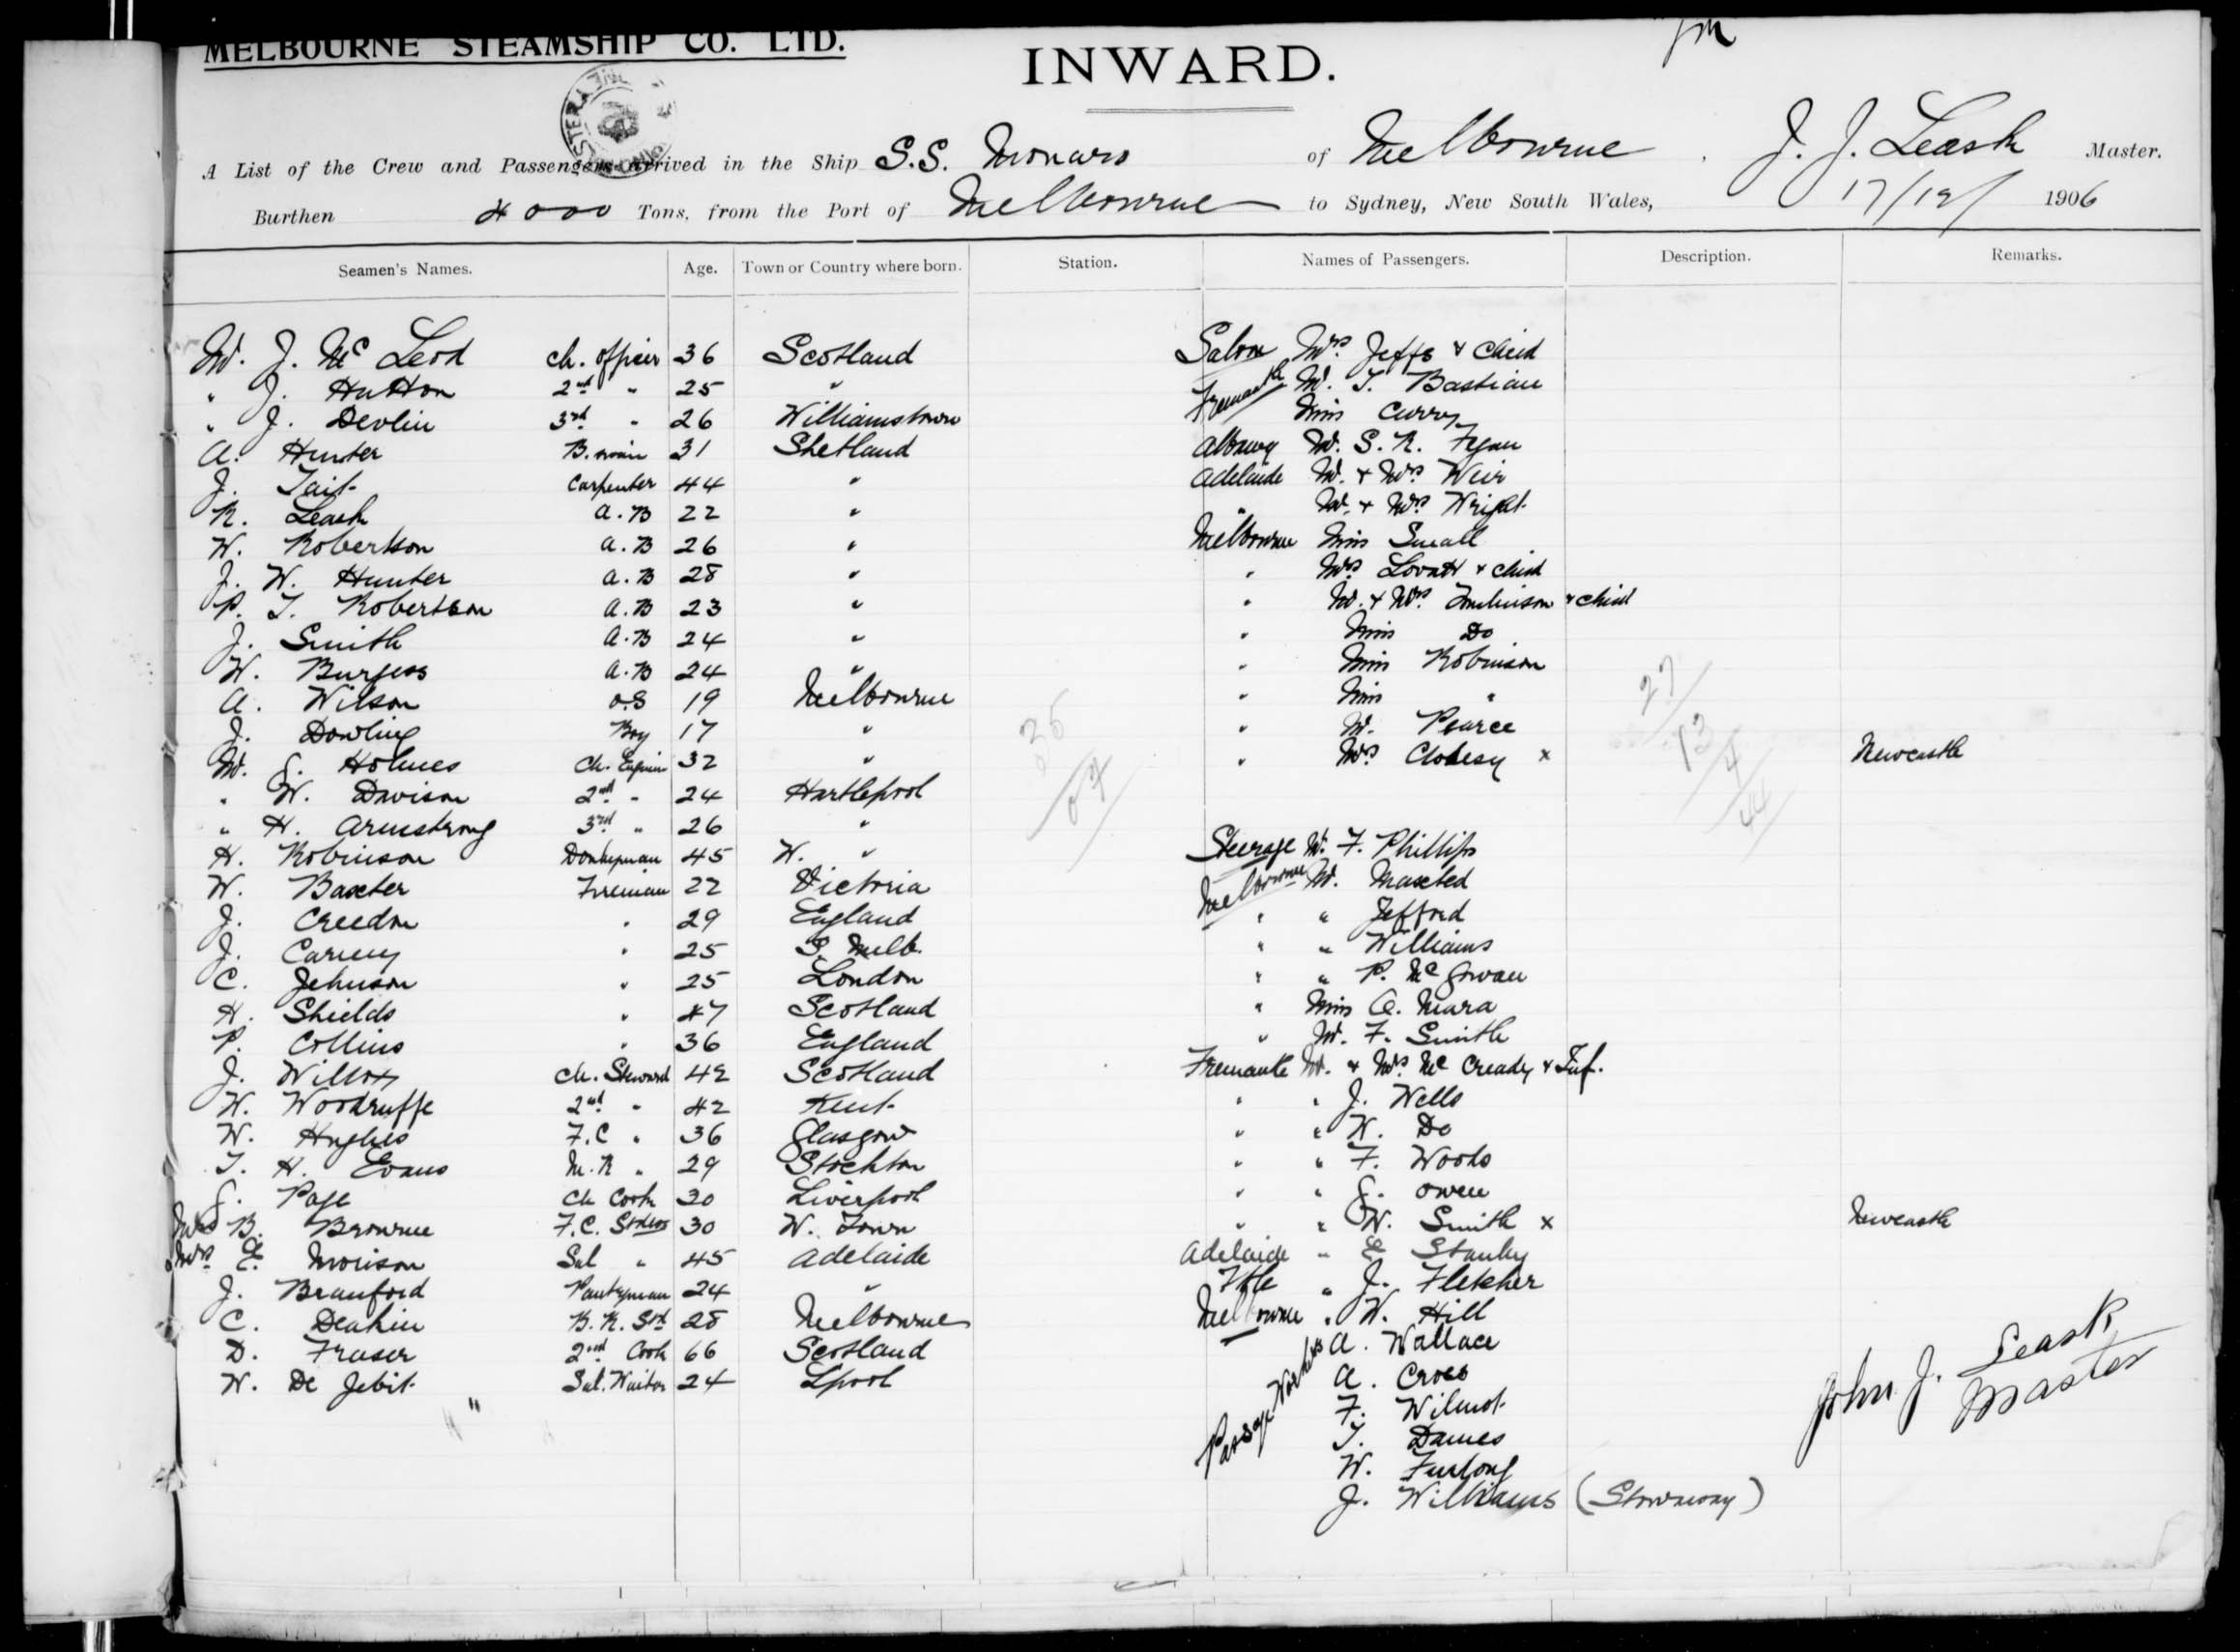 MELBOURNE STEAMSHIP CO. LTD.
INWARD.
A List of the Crew and Passengers arrived in the Ship S.S. Monaro of Melbourne, J. J. Leask Master.
Burthen 4000 Tons, from the Port of Melbourne to Sydney, New South Wales, 17/12/ 1906
Seamen's Names. Age. Town or Country where born. Station. Names of Passengers. Description. Remarks.
Mr. J. Mc Leod ch. officer 36 Scotland
" J. Hutton 2nd " 25 "
" J. Devlin 3rd " 26 Williamstown
A. Hunter B. swain 31 Shetland
J. Tait Carpenter 44 "
R. Leask A.B 22 "
W. Robertson A.B 26 "
J. W. Hunter A.B 28 "
P. T. Robertson A.B 23 "
J. Smith A.B 24 "
W. Burgess A.B 24 "
A. Wilson O.S 19 Melbourne
J. Dowling Boy 17 "
Mr. G. Holmes Ch. Engineer 32 "
" W. Davison 2nd " 24 Hartlepool
" H. Armstrong 3rd " 26 "
H. Robinson Donkeyman 45 W. "
W. Baxter Fireman 22 Victoria
J. Creedon " 29 England
J. Carney " 25 S. Melb.
C. Johnson " 25 London
H. Shields " 47 Scotland
P. Collins " 36 England
J. Willox ch. Steward 42 Scotland
W. Woodruffe 2nd " 42 Kent
W. Hughes F.C " 36 Glasgow
T. H. Evans M.R " 29 Stockton
G. Page Ch Cook 30 Liverpool
Mrs B. Browne F.C. Stdess 30 W. Town
Mrs. E. Morison Sal " 45 Adelaide
J. Branford Pantryman 24 "
C. Deakin B.R. Std 28 Melbourne
D. Fraser 2nd Cook 66 Scotland
W. De Jebit Sal. Waiter 24 Lpool
Saloon Mrs. Jeffs & Child
Fremantle Mr. T. Bastian
Miss Curry
Albany Mr. S. R. Fyan
Adelaide Mr. & Mrs Weir
" Mr. & Mrs Wright
Melbourne Miss Small
" Mrs Lovatt & child
" Mr. & Mrs. Tomlinson & child
" Miss Do
" Miss Robinson
" Miss "
" Mr. Pearce
" Mrs x Newcastle
Steerage Mr. F. Phillips
Melbourne Mr. Maxted
" " Jefford
" " Williams
" " P. Mc Gowan
" Miss O. Mara
" Mr. F. Smith
Fremantle Mr. & Mrs. Mc Cready & Inf.
" " J. Wells
" " W. Do
" " F. Woods
" " G. Owen
" " W. Smith x Newcastle
Adelaide " E Stanley
Ftle " J. Fletcher
Melbourne " W. Hill
Passage Workers A. Wallace
A. Cross
F. Wilmot
T. Dames
W. Furlong
J. Williams (Stowaway)
27/
13/
4/
44
John J. Leask
Master